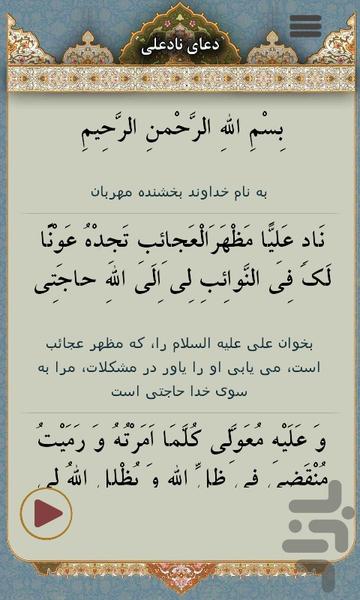 دعای نادعلی
بِسْمِ اللهِ الرَّحْمنِ الرَّحِيمِ
به نام خداوند بخشنده مهربان
نَادِ عَلِيًّا مَظْهَرَالْعَجائِبِ تَجِدْهُ عَوْنًا
لَکَ فِی النَّوائِبِ لِی اِلَی اللهِ حاجَتِی
بخوان علی علیه السلام را، که مظهر عجائب
است، می یابی او را یاور در مشکلات، مرا به
سوی خدا حاجتی است
وَ عَلَیْهِ مُعَوَّلِی كُلَّمَا اَمَرْتُهُ وَ رَمَیْتُ
مُنْقَضِی فِی ظِلِّ اللهِ وَ یُظْلِلِ اللهُ لِی
بازار